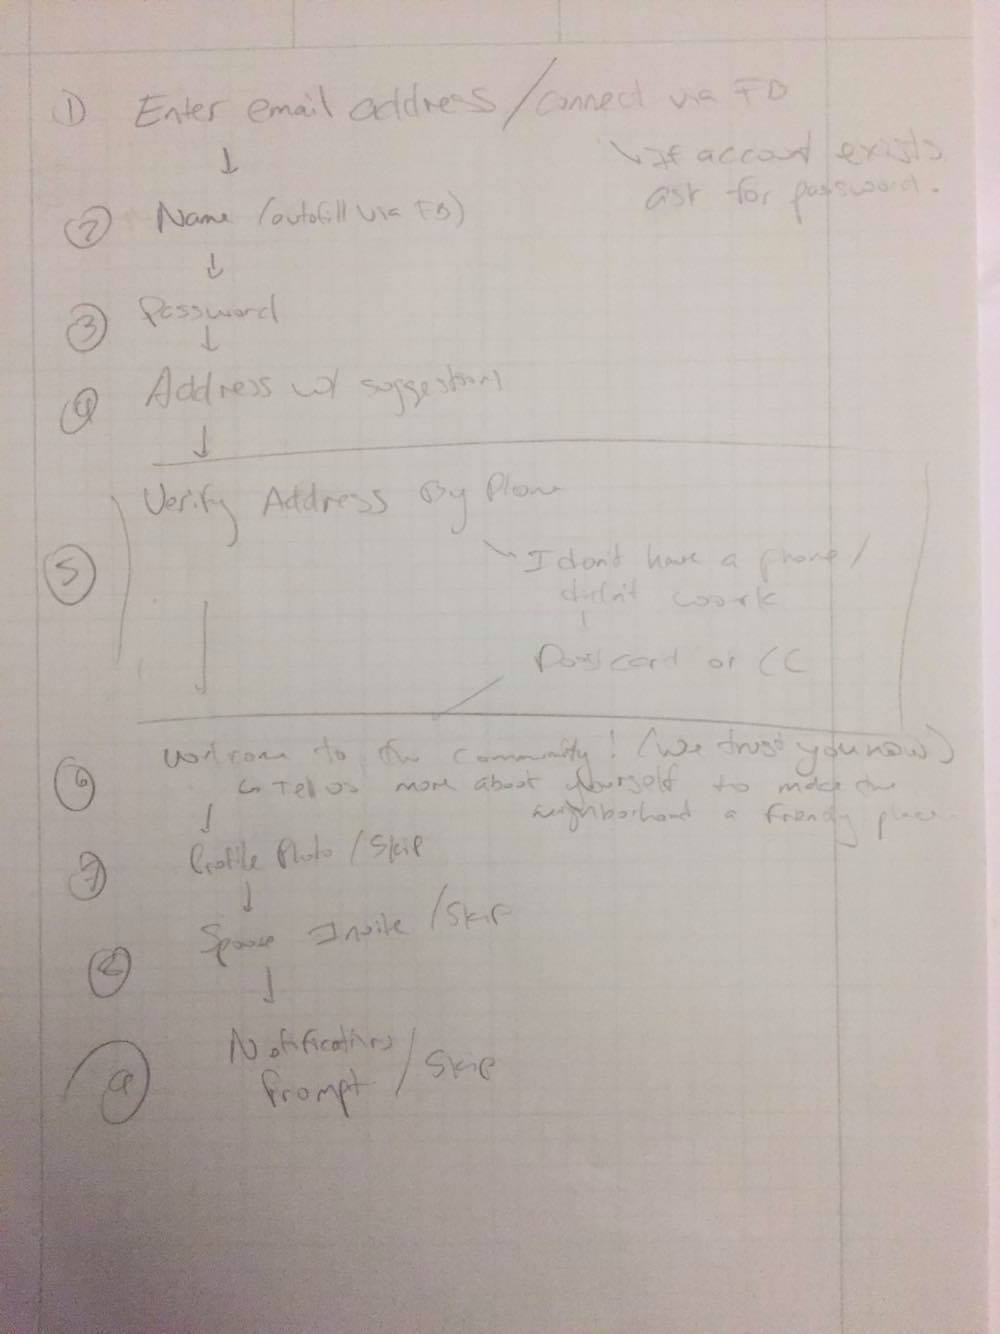 ① Enter email address / connect via FB
↘ If account exists
ask for password.
② Name (autofill via FB)
③ Password
④ Address w/ suggestions
⑤ Verify Address By Phone
I don't have a phone /
didn't work
Postcard or CC
⑥ Welcome to the community! (We trust you now)
↳ Tell us more about yourself to make the
neighborhood a friendly place
⑦ Profile Photo / Skip
⑧ Spouse Invite / Skip
⑨ Notifications
Prompt / Skip